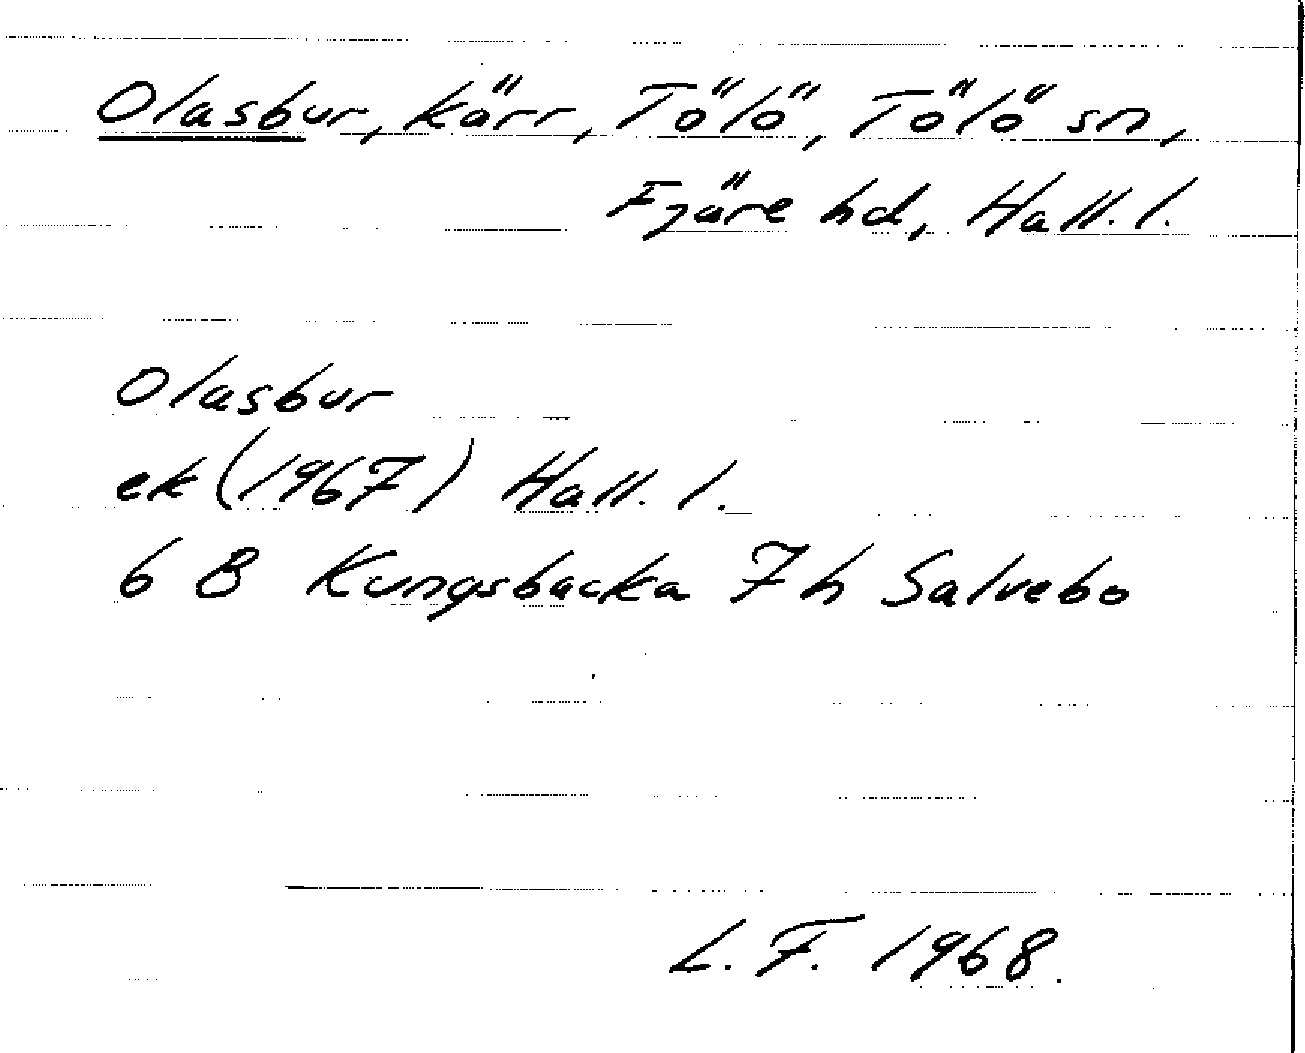 Olasbur, kärr, Tölö, Tölö sn,
Fjäre hd, Hall. l.
Olasbur
ek (1967) Hall. l.
6 B Kungsbacka 7 h Salvebo
L. F. 1968.